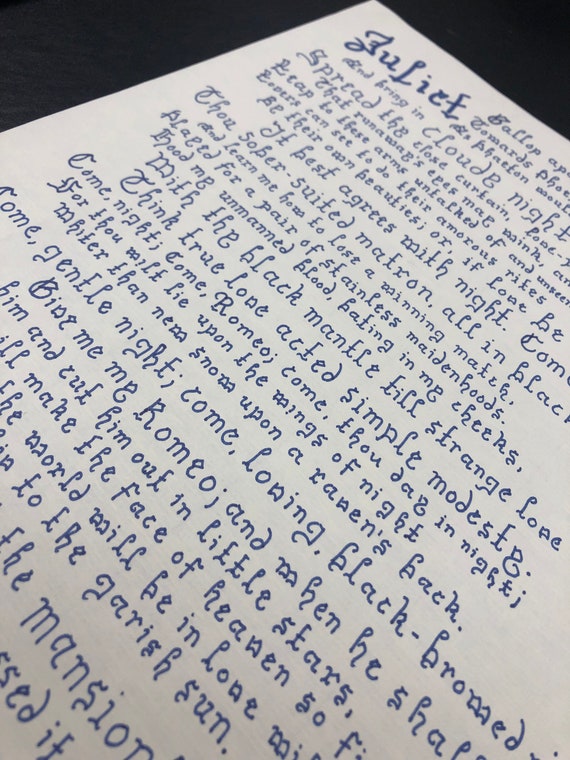 Juliet
Gallop ap
Towards Pho
As Phaeton wou
And bring in cloudy night
Spread thy close curtain, love-
That runaway's eyes may wink, an
Leap to these arms untalked of and unseen
Lovers can see to do their amorous rites
By their own beauties; or, if love be
It best agrees with night. Come
Thou sober-suited matron, all in black
And learn me how to lose a winning match,
Played for a pair of stainless maidenhoods.
Hood my unmanned blood, bating in my cheeks,
With thy black mantle till strange love
Think true love acted simple modesty.
Come, night; Come, Romeo; come, thou day in night;
For thou wilt lie upon the wings of night
Whiter than new snow upon a raven's back.
Come, gentle night; come, loving, black-browed
Give me my Romeo; and when he shall
him and cut him out in little stars,
ill make the face of heaven so fi
the world will be in love wi
to the garish sun.
the mansion
ssed it